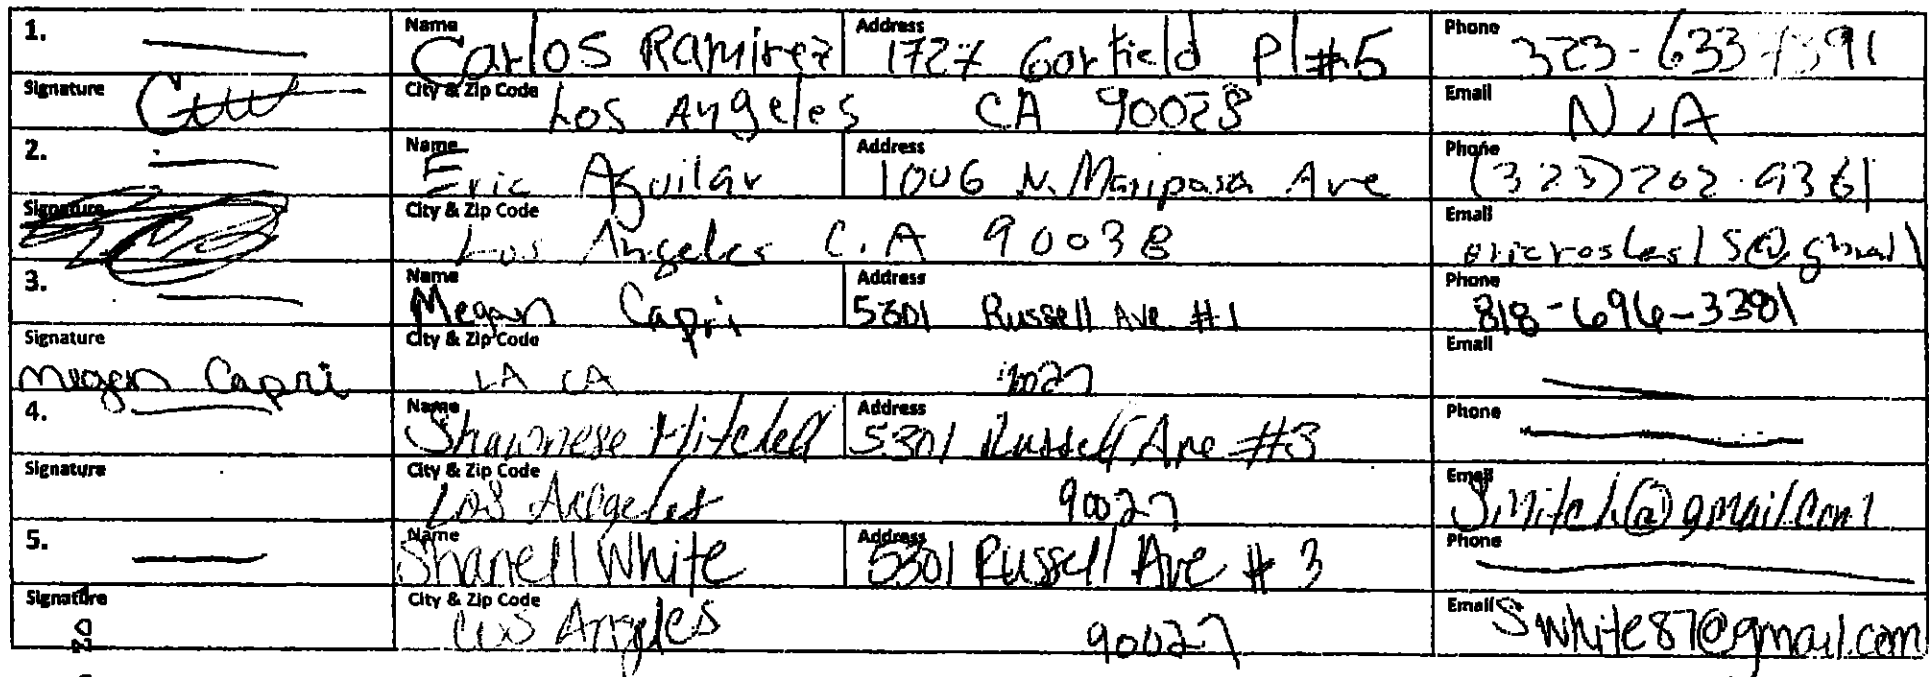 1. Name Carlos Ramirez Address 1727 Garfield Pl #5 Phone 323-633-7391
Signature City & Zip Code Los Angeles CA 90028 Email N/A
2. Name Eric Aguilar Address 1006 N. Mariposa Ave Phone (323) 202-9361
Signature City & Zip Code Los Angeles C.A 90038 Email
3. Name Megan Capri Address 5301 Russell Ave #1 Phone 818-696-3381
Signature Megan Capri City & Zip Code LA CA 90027 Email
4. Name Shawnese Mitchell Address 5301 Russell Ave #3 Phone
Signature City & Zip Code Los Angeles 90027 Email
5. Name Shanell White Address 5301 Russell Ave #3 Phone
Signature City & Zip Code Los Angles 90027 Email Swhite87@gmail.com